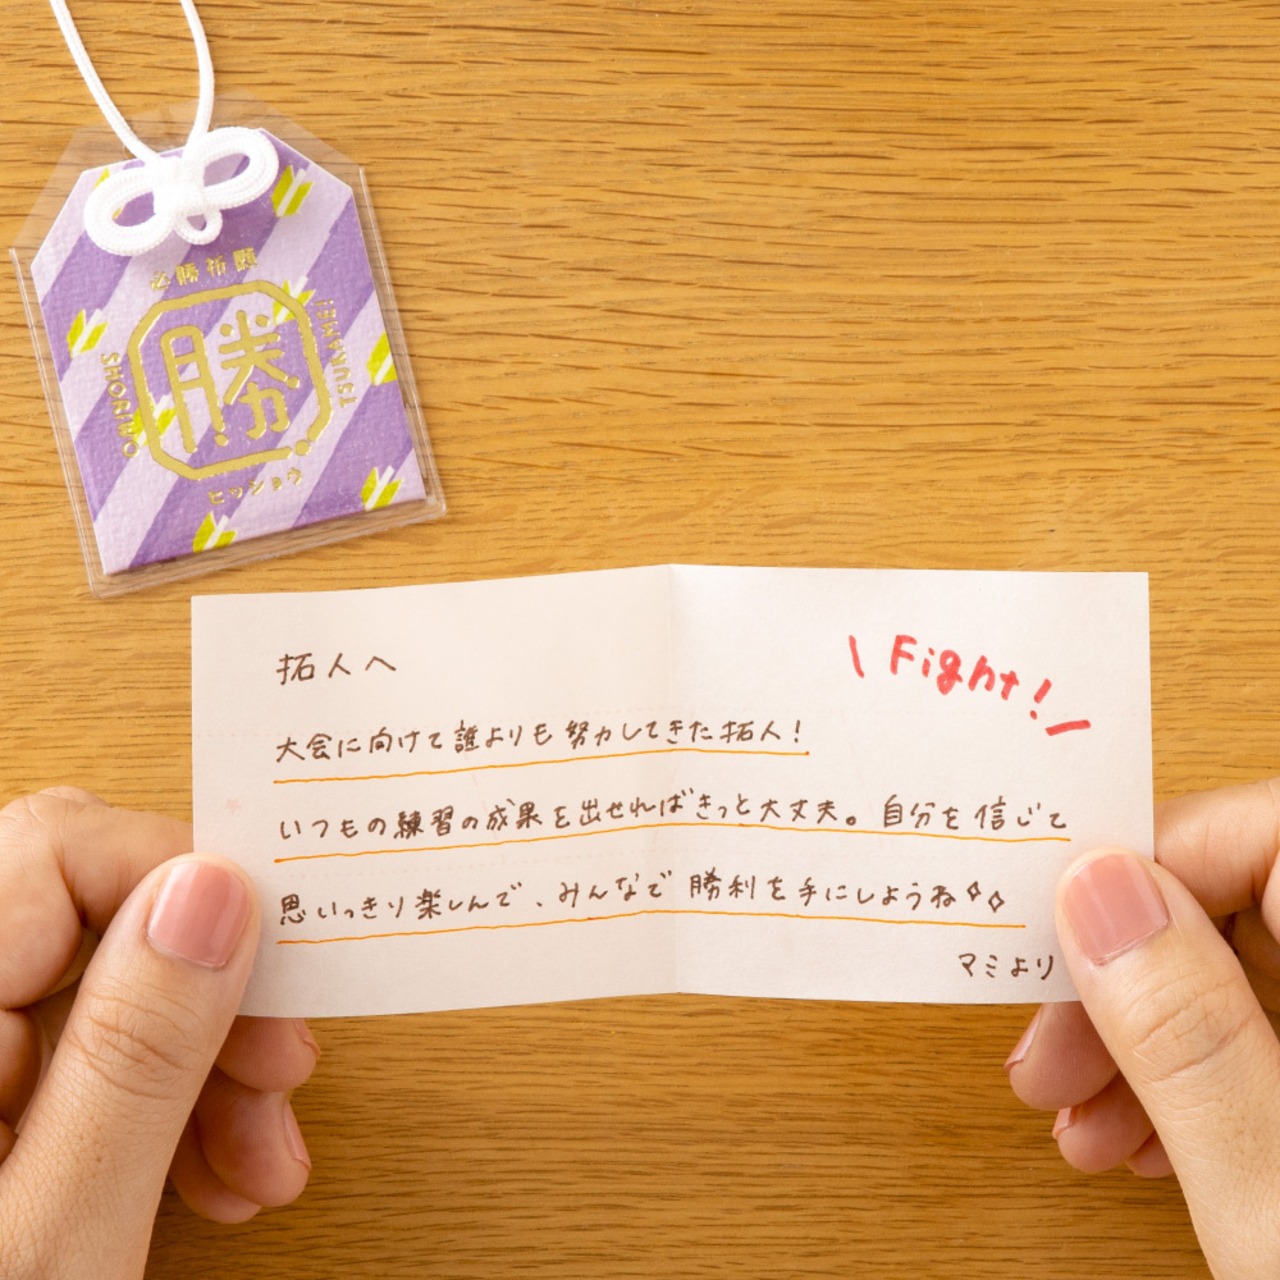 必勝祈願
勝
SHOURI WO
TSUKAME!
ヒッショウ
拓人へ
\ Fight! /
大会に向けて誰よりも努力してきた拓人!
いつもの練習の成果を出せればきっと大丈夫。自分を信じて
思いっきり楽しんで、みんなで勝利を手にしようね✧✧
マミより